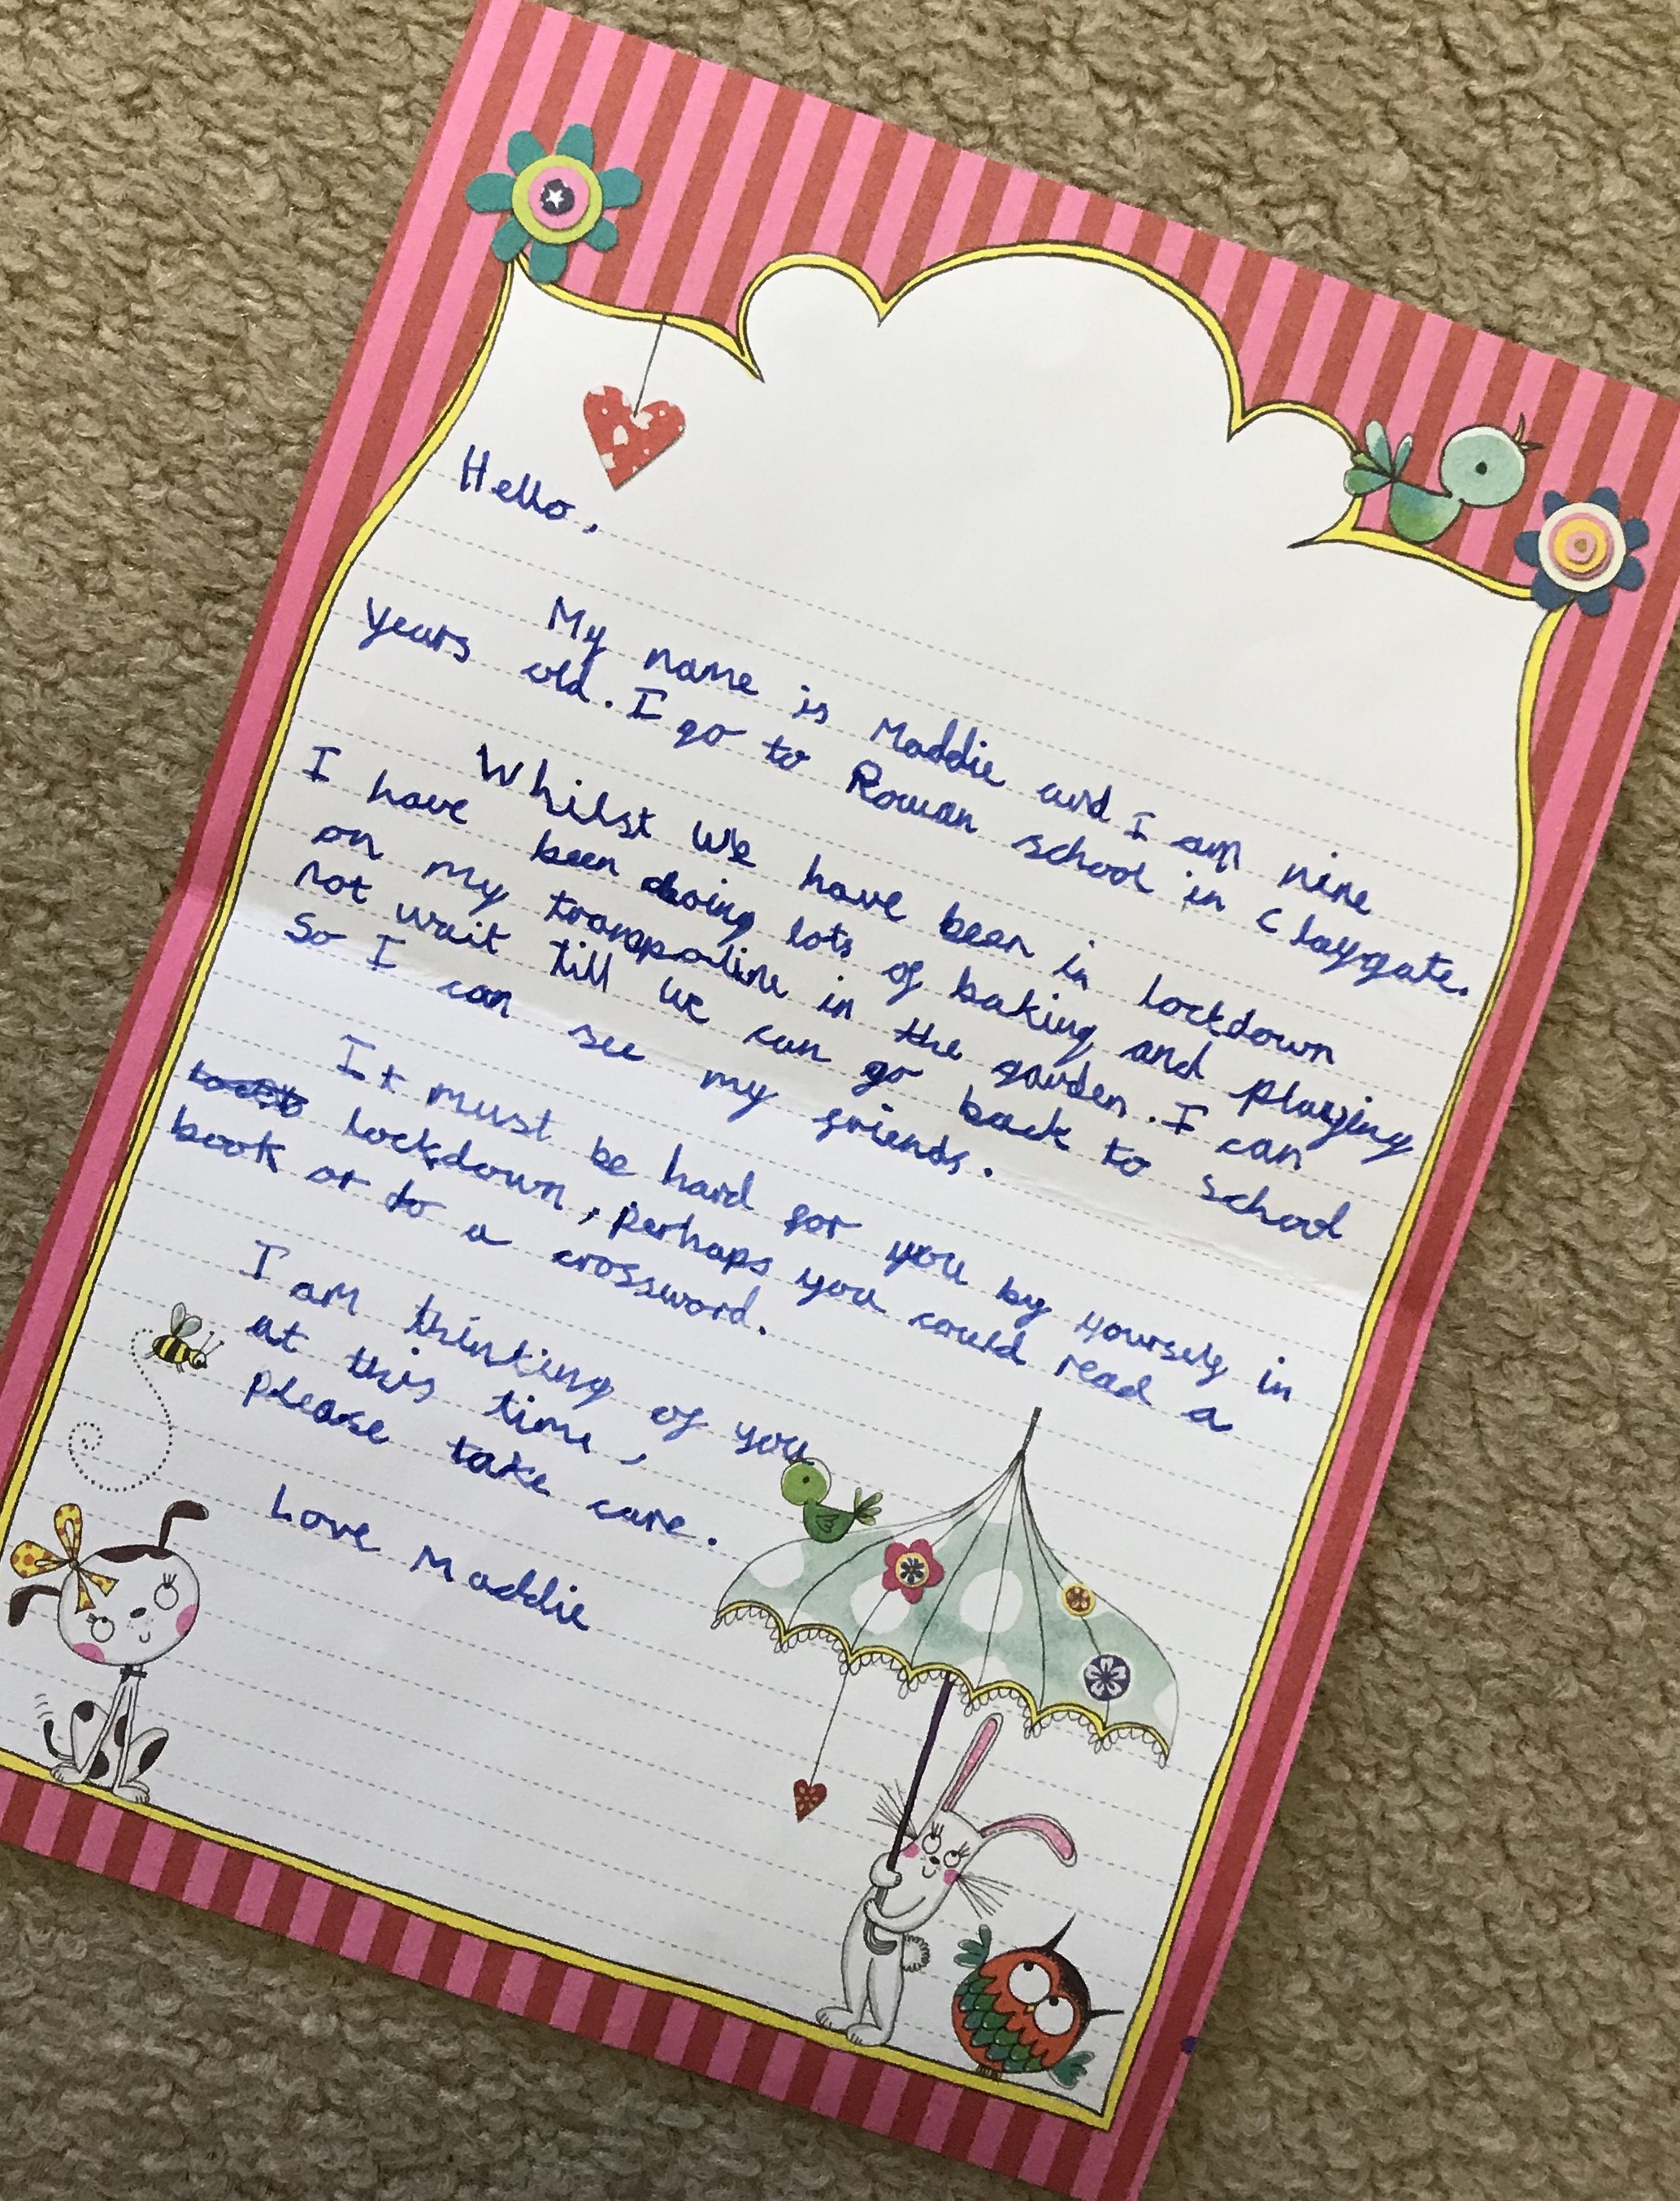 Hello,
My name is Maddie and I am nine
years old. I go to Rowan school in Claygate.
Whilst we have been in lockdown
I have been doing lots of baking and playing
on my trampoline in the garden. I can
not wait till we can go back to school
so I can see my friends.
It must be hard for you by yourself in
lockdown, perhaps you could read a
book or do a crossword.
I am thinking of you
at this time,
please take care.
Love Maddie